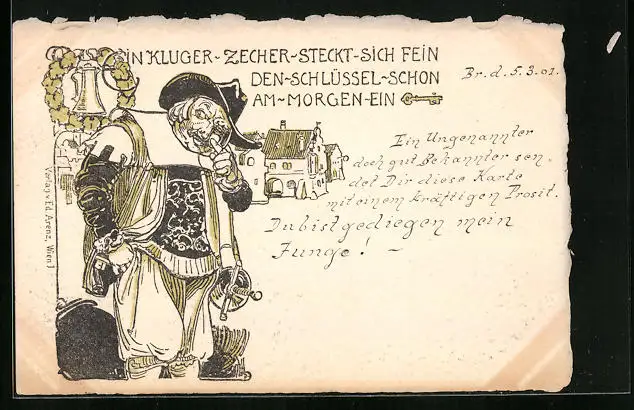 EIN KLUGER-ZECHER-STECKT-SICH FEIN
DEN-SCHLÜSSEL-SCHON
AM-MORGEN-EIN
Br. d. 5.3.01.
Ein Ungenannter
doch gut Bekannter sen-
det Dir diese Karte
mit einem kräftigen Prosit.
Du bist gediegen mein
Junge! –
Verlag v. Ed. Arenz, Wien I